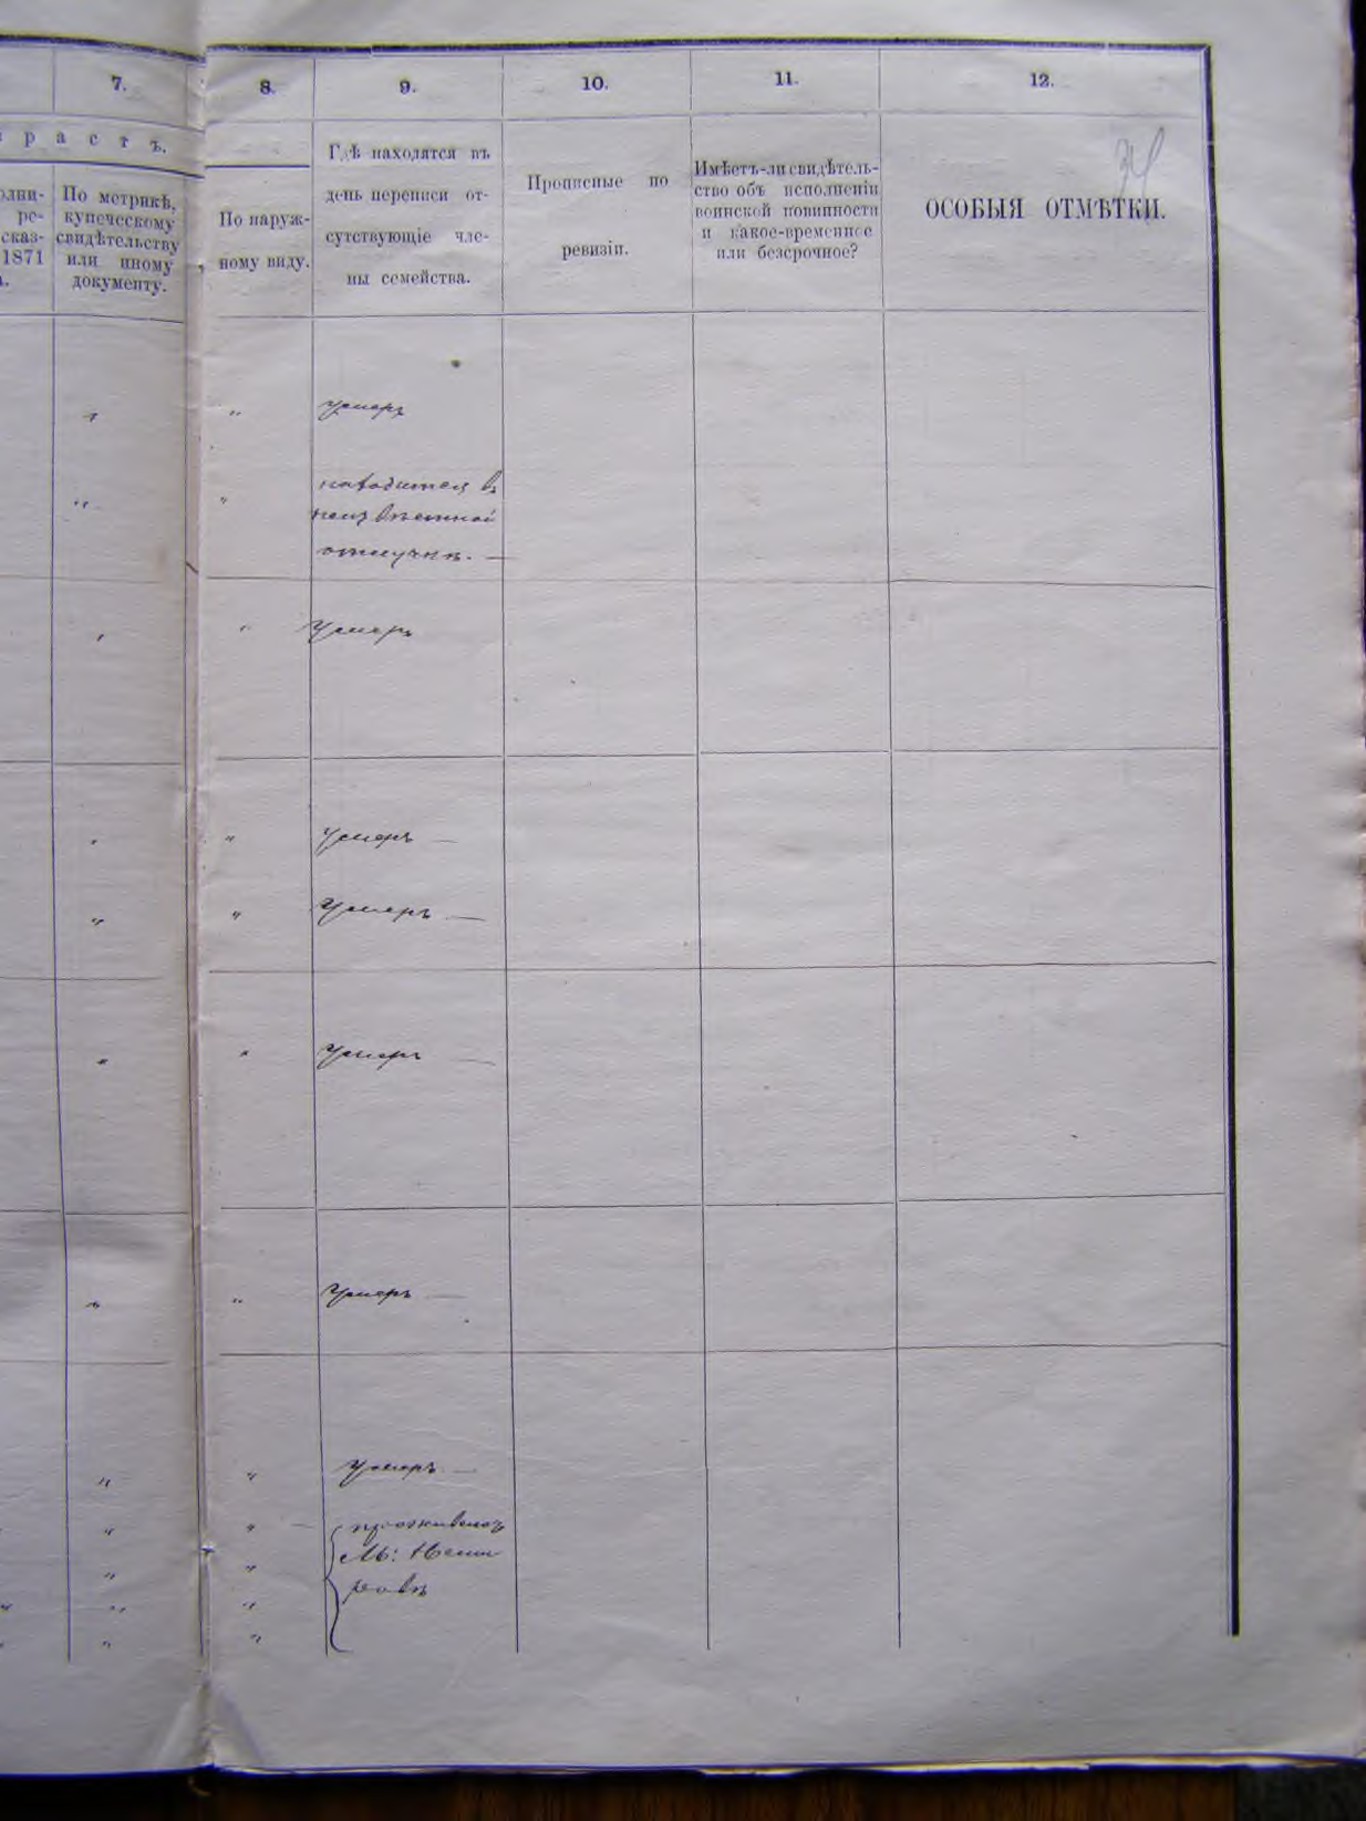 7.
8.
9.
10.
11.
12.
р а с т ъ.
34
олни-
ре-
сказ-
1871
По метрикѣ,
купеческому
свидѣтельству
или иному
документу.
По наруж-
ному виду.
Гдѣ находятся въ
день переписи от-
сутствующіе чле-
ны семейства.
Прописные по
ревизіи.
Имѣетъ-ли свидѣтель-
ство объ исполненіи
воинской повинности
и какое-временное
или безсрочное?
ОСОБЫЯ ОТМѢТКИ.
" " умеръ
" " находится въ
неизвѣстной
отлучкѣ. —
" " Умеръ
" " Умеръ —
" " Умеръ —
" " Умеръ —
" " Умеръ —
" " Умеръ —
" " — проживаютъ
" " М: Неми
" " ровѣ
" "